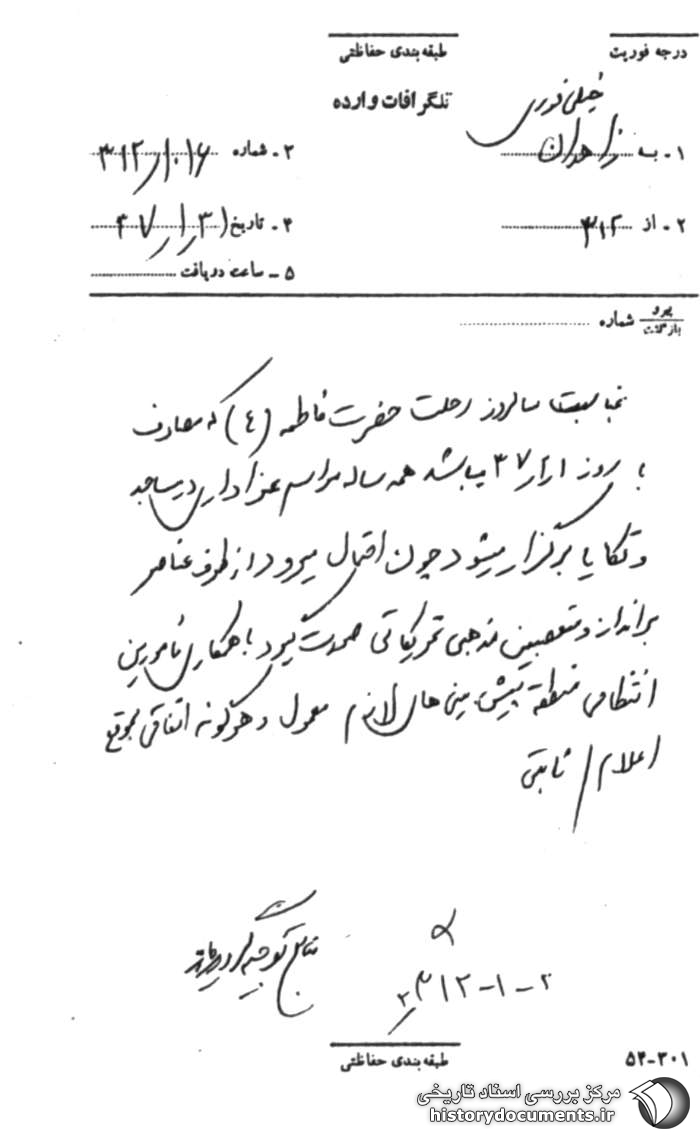 درجه فوریت
طبقه‌بندی حفاظتی
خیلی فوری
تلگرافات وارده
۱ـ به زاهدان
۲ـ شماره ۳۱۲/۱۰۱۶
۲ـ از ۳۱۲
۴ـ تاریخ ۴۷/۱/۳۱
۵ـ ساعت دریافت
پیرو
بازگشت
شماره
بمناسبت سالروز رحلت حضرت فاطمه (ع) که مصادف
با روز ۳۷ میباشد همه ساله مراسم عزاداری در مساجد
و تکایا برگزار میشود چون احتمال میرود از طرف عناصر
برانداز و متعصبین مذهبی تحریکاتی صورت گیرد با همکاری مامورین
انتظامی منطقه پیش بینی های لازم معمول و هرگونه اتفاقی بموقع
اعلام / ثابتی
۲-۱-۳۱۲
طبقه‌بندی حفاظتی
۵۴-۳۰۱
مرکز بررسی اسناد تاریخی
historydocuments.ir